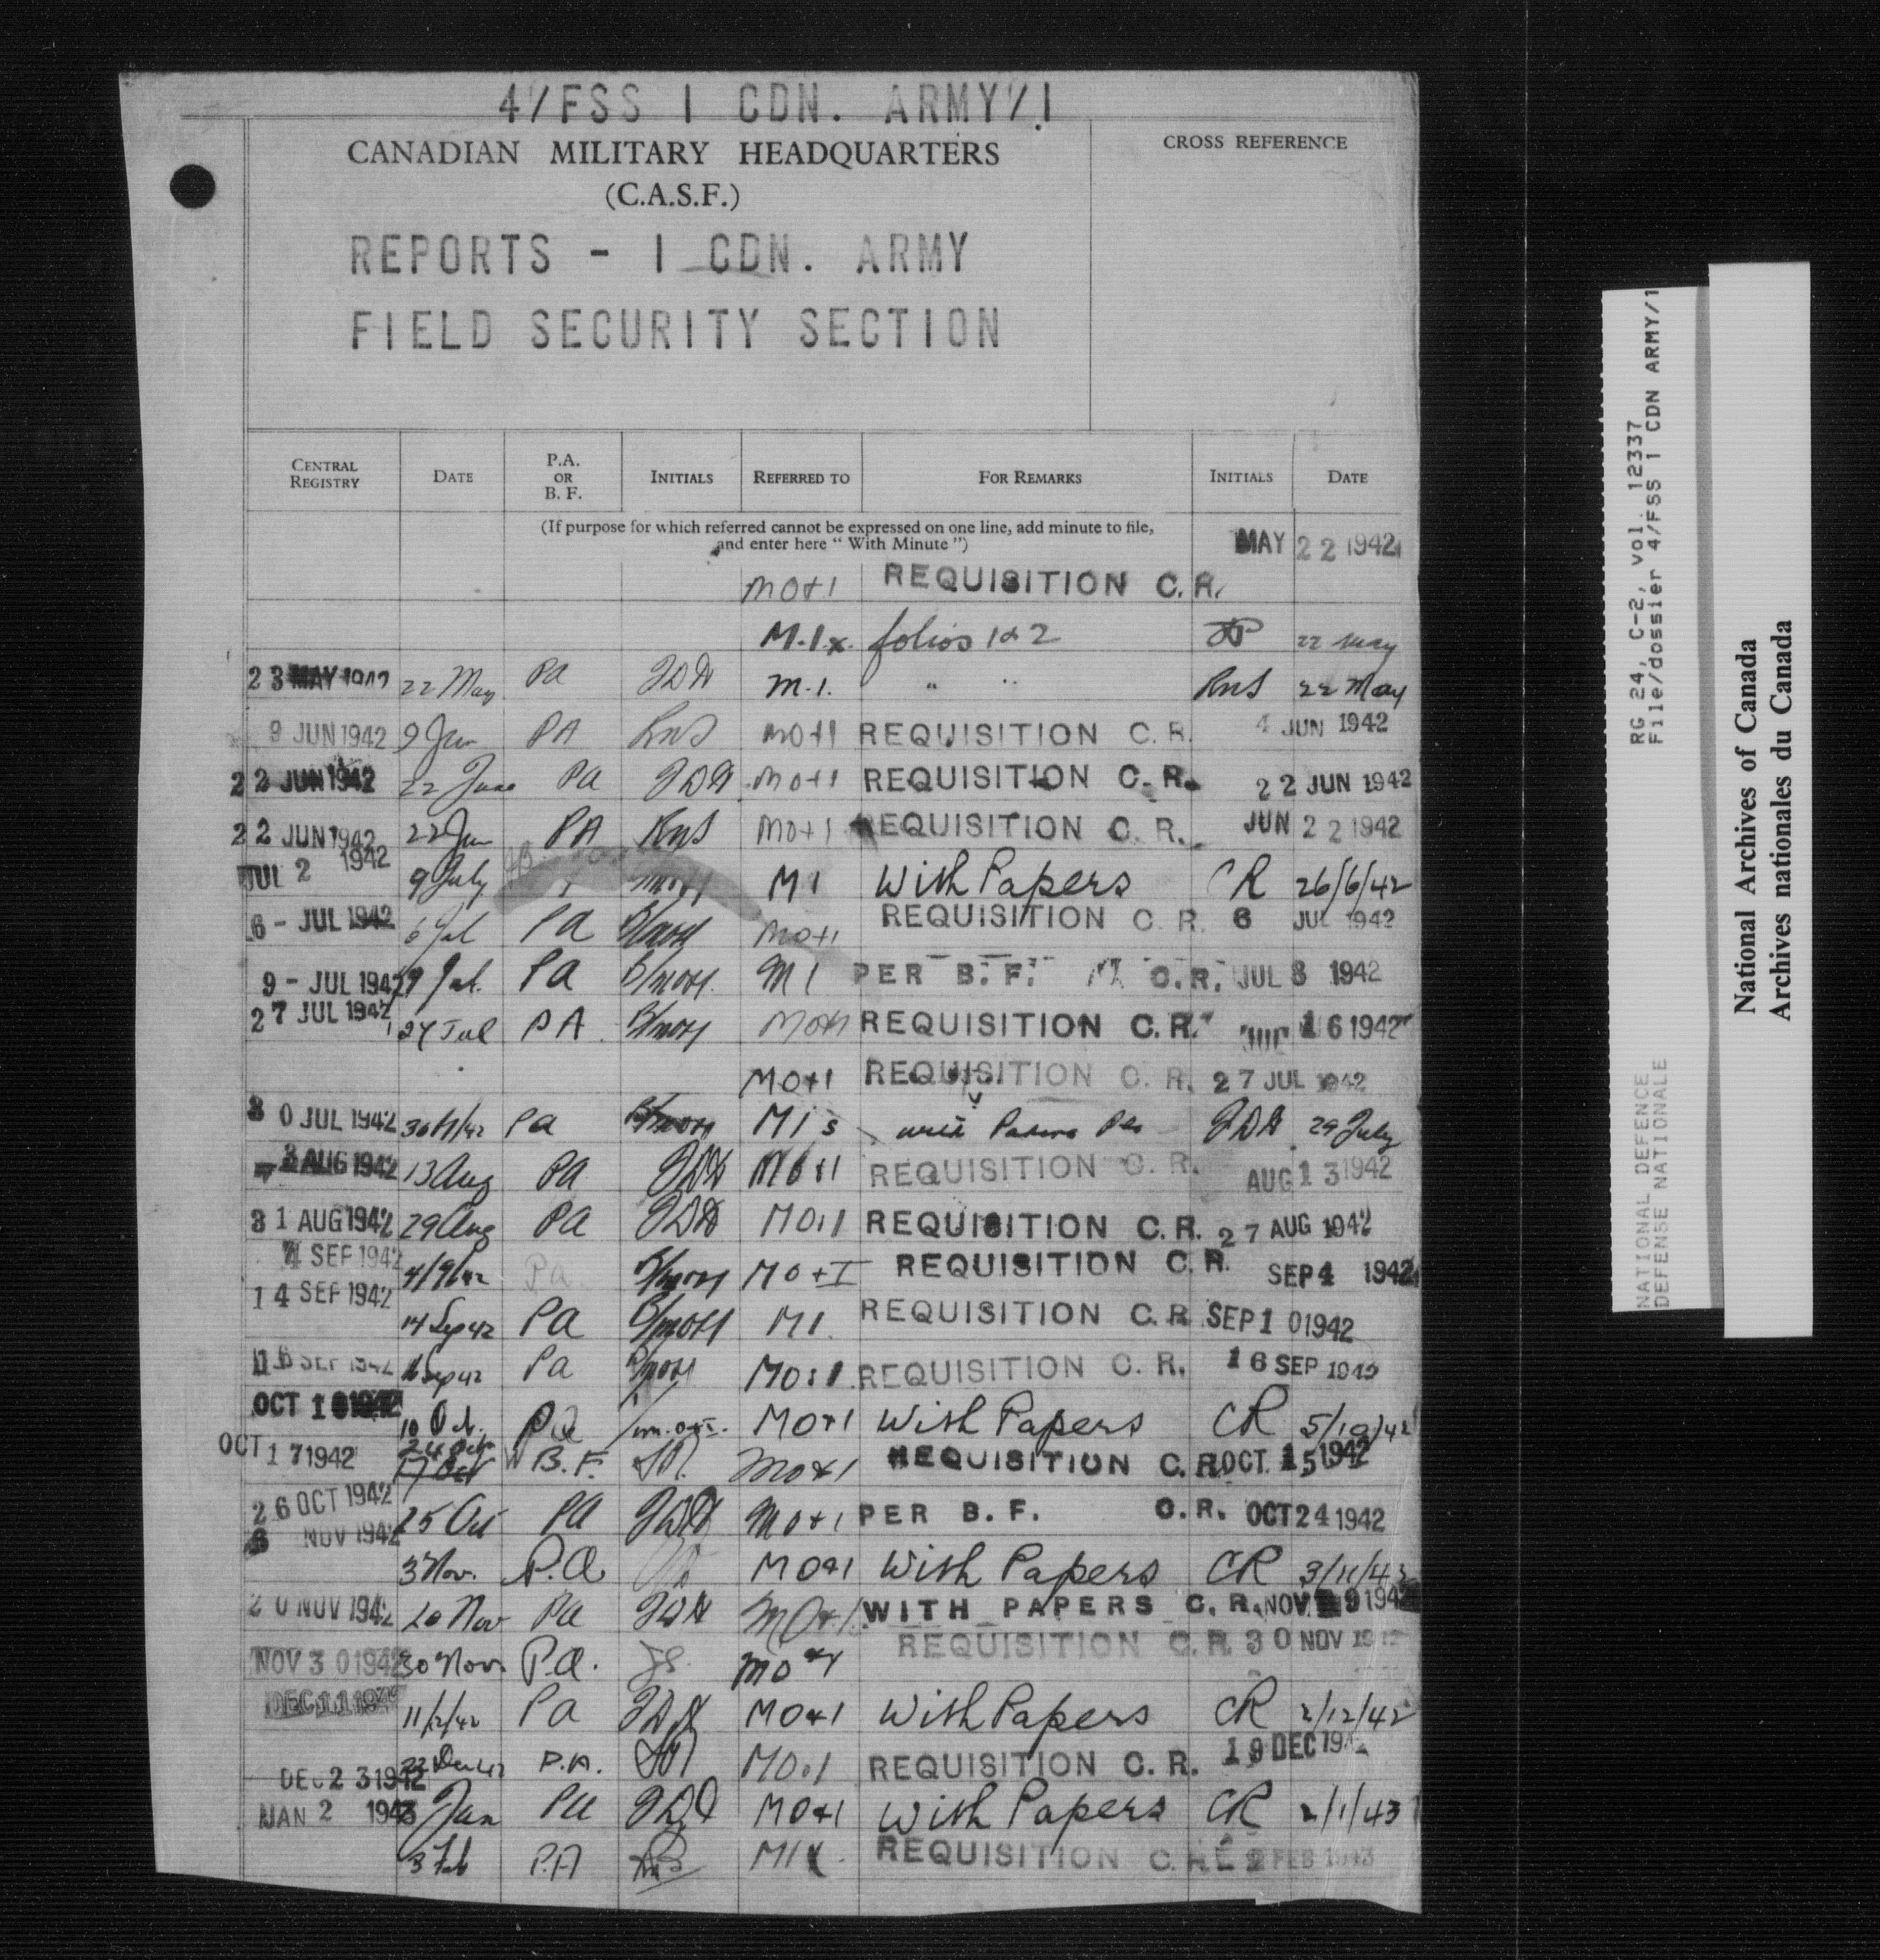 4/FSS 1 CDN. ARMY/1
CANADIAN MILITARY HEADQUARTERS
(C.A.S.F.)
CROSS REFERENCE
REPORTS - 1 CDN. ARMY
FIELD SECURITY SECTION
CENTRAL REGISTRY DATE P.A. OR B. F. INITIALS REFERRED TO FOR REMARKS INITIALS DATE
(If purpose for which referred cannot be expressed on one line, add minute to file,
and enter here “ With Minute ”)
MAY 22 1942
MO+1 REQUISITION C.R.
M.I.x. folios 1 & 2 22 May
23 MAY 1942 22 May PA JDH M.I. " " RnS 22 May
9 JUN 1942 9 Jun PA RnS MO+1 REQUISITION C.R. 4 JUN 1942
22 JUN 1942 22 June PA JDH MO+1 REQUISITION C.R. 22 JUN 1942
22 JUN 1942 22 Jun PA RnS MO+1 REQUISITION C.R. JUN 22 1942
JUL 2 1942 9 July MI With Papers CR 26/6/42
6 - JUL 1942 6 Jul PA MO+1 REQUISITION C.R. 6 JUL 1942
9 - JUL 1942 9 Jul. PA MI PER B.F. C.R. JUL 8 1942
27 JUL 1942 27 Jul PA MO+1 REQUISITION C.R. 16 1942
MO+1 REQUISITION C.R. 27 JUL 1942
30 JUL 1942 PA MI JDH 29 July
AUG 1942 13 Aug PA JDH MO+1 REQUISITION C.R. AUG 13 1942
31 AUG 1942 29 Aug PA JDH MO+1 REQUISITION C.R. 27 AUG 1942
4 SEP 1942 4/9/42 Pa. MO+I REQUISITION C.R. SEP 4 1942
14 SEP 1942 14 Sep 42 PA MI. REQUISITION C.R. SEP 10 1942
16 SEP 1942 16 Sep 42 Pa MO+1 REQUISITION C.R. 16 SEP 1942
OCT 10 1942 10 Oct. PA MO+1 With Papers CR 5/10/42
OCT 17 1942 24 Oct B.F. MO+1 REQUISITION C.R. OCT. 15 1942
26 OCT 1942 25 Oct PA JDH MO+1 PER B.F. C.R. OCT 24 1942
NOV 1942 3 Nov. P.A. MO+1 With Papers CR 3/11/42
20 NOV 1942 20 Nov PA JDH MO+1 WITH PAPERS C.R. NOV 19 1942
NOV 30 1942 30 Nov. P.A. MO+1 REQUISITION C.R. 30 NOV 1942
DEC 11 1942 11/12/42 PA JDH MO+1 With Papers CR 2/12/42
DEC 23 1942 Dec 42 P.A. MO+1 REQUISITION C.R. 19 DEC 1942
JAN 2 1943 Jan PA MO+1 With Papers CR 2/1/43
3 Feb P.A. REQUISITION C.R. 2 FEB 1943
RG 24, C-2, vol. 12337
File/dossier 4/FSS 1 CDN ARMY/1
NATIONAL DEFENCE
DEFENSE NATIONALE
National Archives of Canada
Archives nationales du Canada